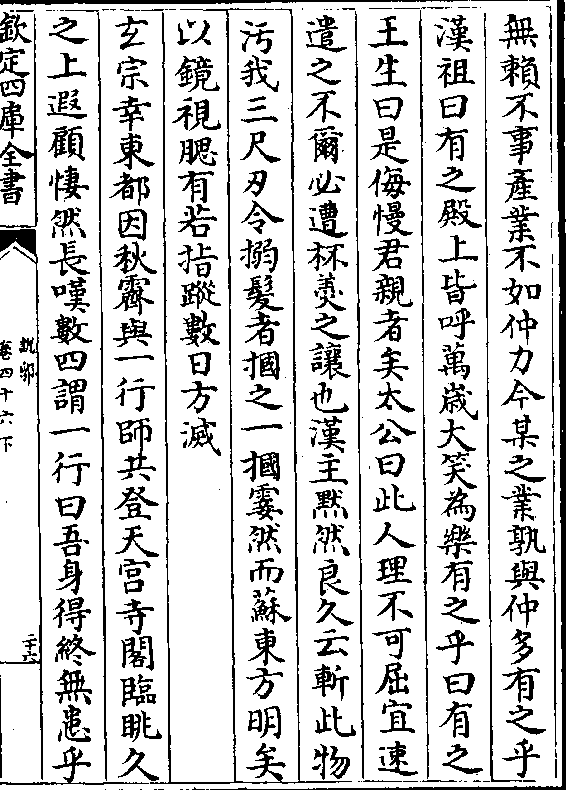 無賴不事產業不如仲力今某之業孰與仲多有之乎
漢祖曰有之殿上皆呼萬歲大笑為樂有之乎曰有之
王生曰是侮慢君親者矣太公曰此人理不可屈宜速
遣之不爾必遭杯羹之讓也漢主黙然良久云斬此物
汚我三尺刃令搦髮者摑之一摑霎然而蘇東方明矣
以鏡視腮有若指蹤數日方滅
玄宗幸東都因秋霽與一行師共登天宮寺閣臨眺久
之上遐顧悽然長嘆數四謂一行曰吾身得終無患乎
欽定四庫全書
說郛
卷四十六下
二十六